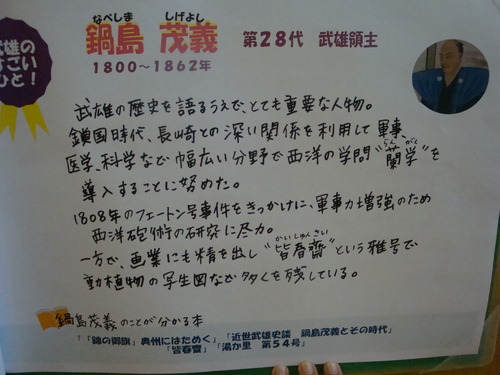 武雄の
すごい
ひと！
なべしま しげよし
鍋島 茂義 第28代 武雄領主
1800～1862年
武雄の歴史を語るうえで、とても重要な人物。
鎖国時代、長崎との深い関係を利用して軍事、
医学、科学など幅広い分野で西洋の学問"蘭学"を
らんがく
導入することに努めた。
1808年のフェートン号事件をきっかけに、軍事力増強のため
西洋砲術の研究に尽力。
かいしゅんさい
一方で、画業にも精を出し"皆春齋"という雅号で
動植物の写生図など多くを残している。
鍋島茂義のことが分かる本
「「錦の御旗」奥州にはためく」「近世武雄史談 鍋島茂義とその時代」
「皆春齋」「湯か里 第54号」